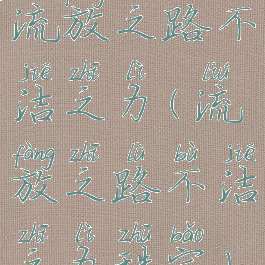 流放之路不
jié zhī lì liú
洁之力(流
fàng zhī lù bù jié
放之路不洁
zhī lì zhū bǎo
之力珠宝)